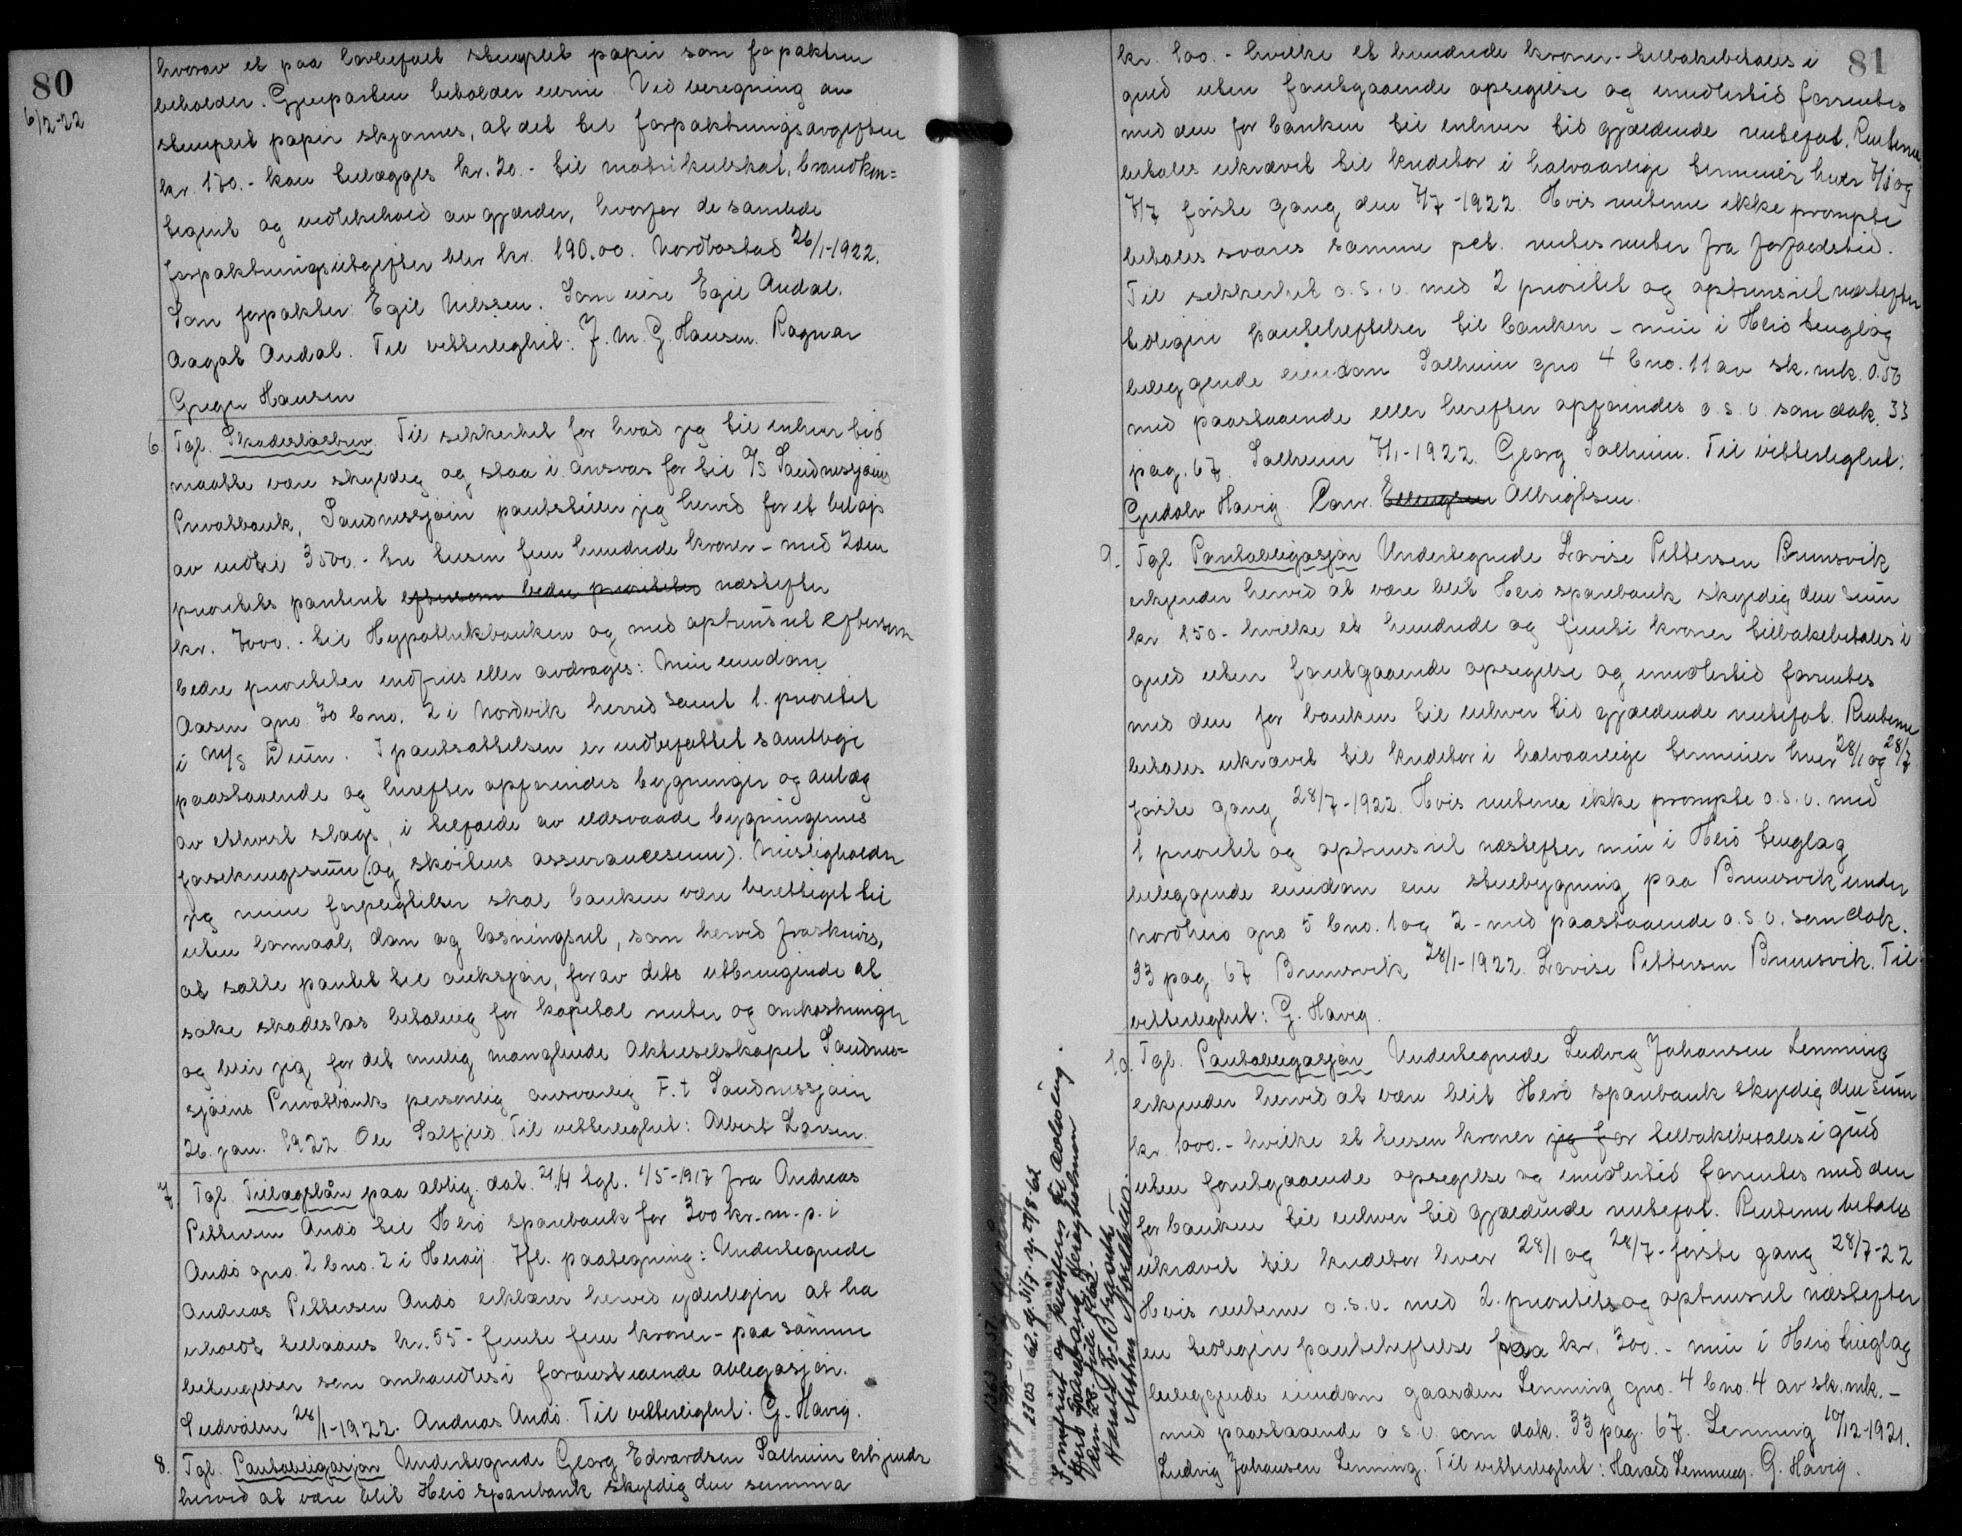 80
6/2-22
hvorav et paa lovbefalt stemplet papir som forpakteren
beholder. Gjenparten beholder eierne. Ved beregning av
stemplet papir skjønnes, at det til forpaktningsavgiften
kr. 170.- kan tillægges kr. 20.- til matrikulskat, brandkon=
tigent og vedlikehold av gjærder, hvorfor de samlede
forpaktningsutgifter blir kr. 190.00. Nordbostad 26/1-1922.
Som forpakter: Egil Nilssen. Som eiere Egil Andal.
Aagot Andal. Til vitterlighet: J. M. G. Hansen. Ragnar
Greger Hansen
6 Tgl. Skadesløsbrev. Til sikkerhet for hvad jeg til enhver tid
maatte være skyldig og staa i ansvar for til A/S Sandnessjøens
Privatbank, Sandnessjøen pantstiller jeg herved for et beløp
av indtil 3500.- tre tusen fem hundrede kroner - med 2den
prioritets panteret eftersom bedre prioriteter næstefter
kr. 7000.- til Hypothekbanken og med optrinsret eftersom
bedre prioriteter indfries eller avdrages: Min eiendom
Aasen gno 30 bno. 2 i Nordvik herred samt 1. prioritet
i M/S Diun. I pantsættelsen er indbefattet samtlige
paastaaende og herefter opførendes bygninger og anlæg
av ethvert slags, i tilfælde av ildsvaade bygningernes
forsikringssum (og skøitens assurancesum). Misligholder
jeg mine forpligtelser skal banken være berettiget til
uten lovmaal, dom og løsningsret, som herved fraskrives,
at sælle pantet til auksjon, for av dets utbringende at
søke skadesløs betaling for kapital renter og omkostninger
og blir jeg for det mulig manglende Aktieselskapet Sandnes=
sjøens Privatbank personlig ansvarlig F. t Sandnessjøen
26. jan. 1922 Ole Salfjeld. Til vitterlighet: Albert Larsen.
7 Tgl. Tillægslån paa oblig. dat. 21/4 tgl. 1/5-1917 fra Andreas
Pettersen Andø til Herø sparebank for 300 kr. m. p. i
Andø gno. 2 bno. 2 i Herøy. Ifl. paategning: Undertegnede
Andreas Pettersen Andø erklærer herved yderligere at ha
erholdt tillaans kr. 55 - femti fem kroner - paa samme
betingelser som omhandles i foranstaaende obligasjon.
Sildvalen 28/1-1922. Andreas Andø. Til vitterlighet: G. Havig.
8. Tgl. Pantobligasjon Undertegnede Georg Edvardsen Salheim erkjender
herved at være blit Herø sparebank skyldig den summa
81
kr. 100.- hvilke et hundrede kroner - tilbakebetales i
guld uten forutgaaende opsigelse og imidlertid forrentes
med den for banken til enhver tid gjældende rentefot. Renterne
betales ukrævet til kreditor i halvaarlige terminer hver 7/1 og
7/7 første gang den 7/7-1922. Hvis renterne ikke prompte
betales svares samme pct. rentesrenter fra forfaldstid.
Til sikkerhet o. s. v. med 2 prioritet og optrinsret næstefter
tidligere pantehæftelser til banken - min i Herø tinglag
beliggende eiendom Salheim gno 4 bno. 11 av sk. mk. 0.56
med paastaaende eller herefter opførendes o. s. v. som dok. 33
pag. 67. Salheim 7/1-1922. Georg Salheim. Til vitterlighet:
Gudolv Havig. Conr. Ellingsen Albrigtsen.
9. Tgl. Pantobligasjon Undertegnede Lovise Pettersen Brunsvik
erkjender herved at være blit Herø sparebank skyldig den sum
kr. 150.- hvilke et hundrede og femti kroner tilbakebetales i
guld uten forutgaaende opsigelse og imidlertid forrentes
med den for banken til enhver tid gjældende rentefot. Renterne
betales ukrævet til kreditor i halvaarlige terminer hver 28/1 og 28/7
første gang 28/7-1922. Hvis renterne ikke prompte o. s. v. med
1 prioritet og optrinsret næstefter min i Herø tinglag
beliggende eiendom en stuebygning paa Brunsvik under
Nordherø gno 5 bno. 1 og 2 - med paastaaende o. s. v. som dok.
33 pag. 67 Brunsvik 28/1-1922. Lovise Pettersen Brunsvik. Til
vitterlighet: G. Havig.
10. Tgl. Pantobligasjon Undertegnede Ludvig Johansen Lenning
erkjender herved at være blit Herø sparebank skyldig den sum
kr. 1000.- hvilke et tusen kroner jeg for tilbakebetales i guld
uten forutgaaende opsigelse og imidlertid forrentes med den
for banken til enhver tid gjældende rentefot. Renterne betales
ukrævet til kreditor hver 28/1 og 28/7 - første gang 28/7-22
Hvis renterne o. s. v. med 2. prioritets og optrinsret næstefter
en tidligere pantehæftelse paa kr. 300.- min i Herø tinglag
beliggende eiendom gaarden Lenning gno. 4 bno. 4 av sk. mk. -
med paastaaende o. s. v. som dok. 33 pag. 67. Lenning 10/12-1921.
Ludvig Johansen Lenning. Til vitterlighet: Harald Lenning. G. Havig.